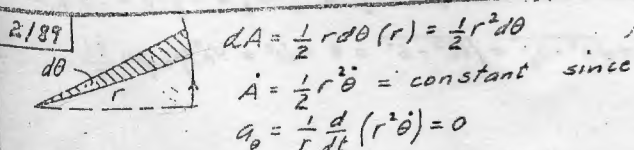 2/189
dθ
r
dA = 1/2 r dθ (r) = 1/2 r² dθ
Ȧ = 1/2 r² θ̇ = constant since
a_θ = 1/r d/dt (r² θ̇) = 0